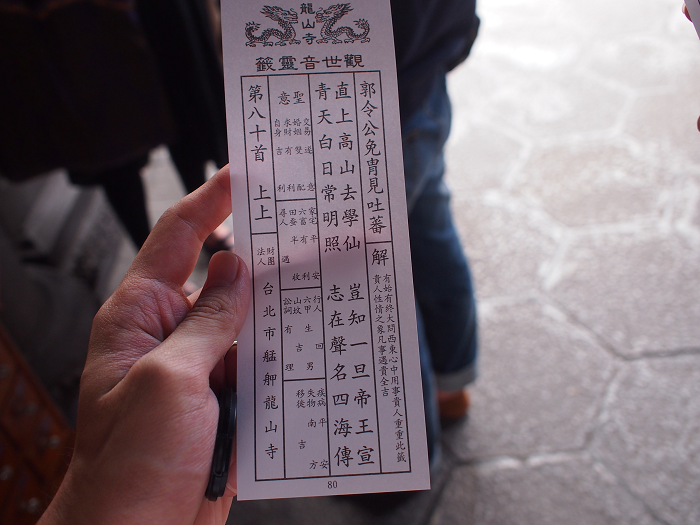 龍山寺
觀世音靈籤
郭令公免冑見吐蕃
解
有始有終大問西東心中用事貴人重重此籤
貴人性情之象凡事遇貴全吉
直上高山去學仙 豈知一旦帝王宣
青天白日常明照 志在聲名四海傳
聖意
交易 遂意
婚姻 雙配
求財 有利
自身 吉利
家宅 平安
六畜 有利
田蚕 半收
尋人 遇
行人 回
六甲 生男
山坟 吉
訟詞 有理
疾病 平安
失物 南方
移徙 吉
第八十首 上上
財團法人 台北市艋舺龍山寺
80